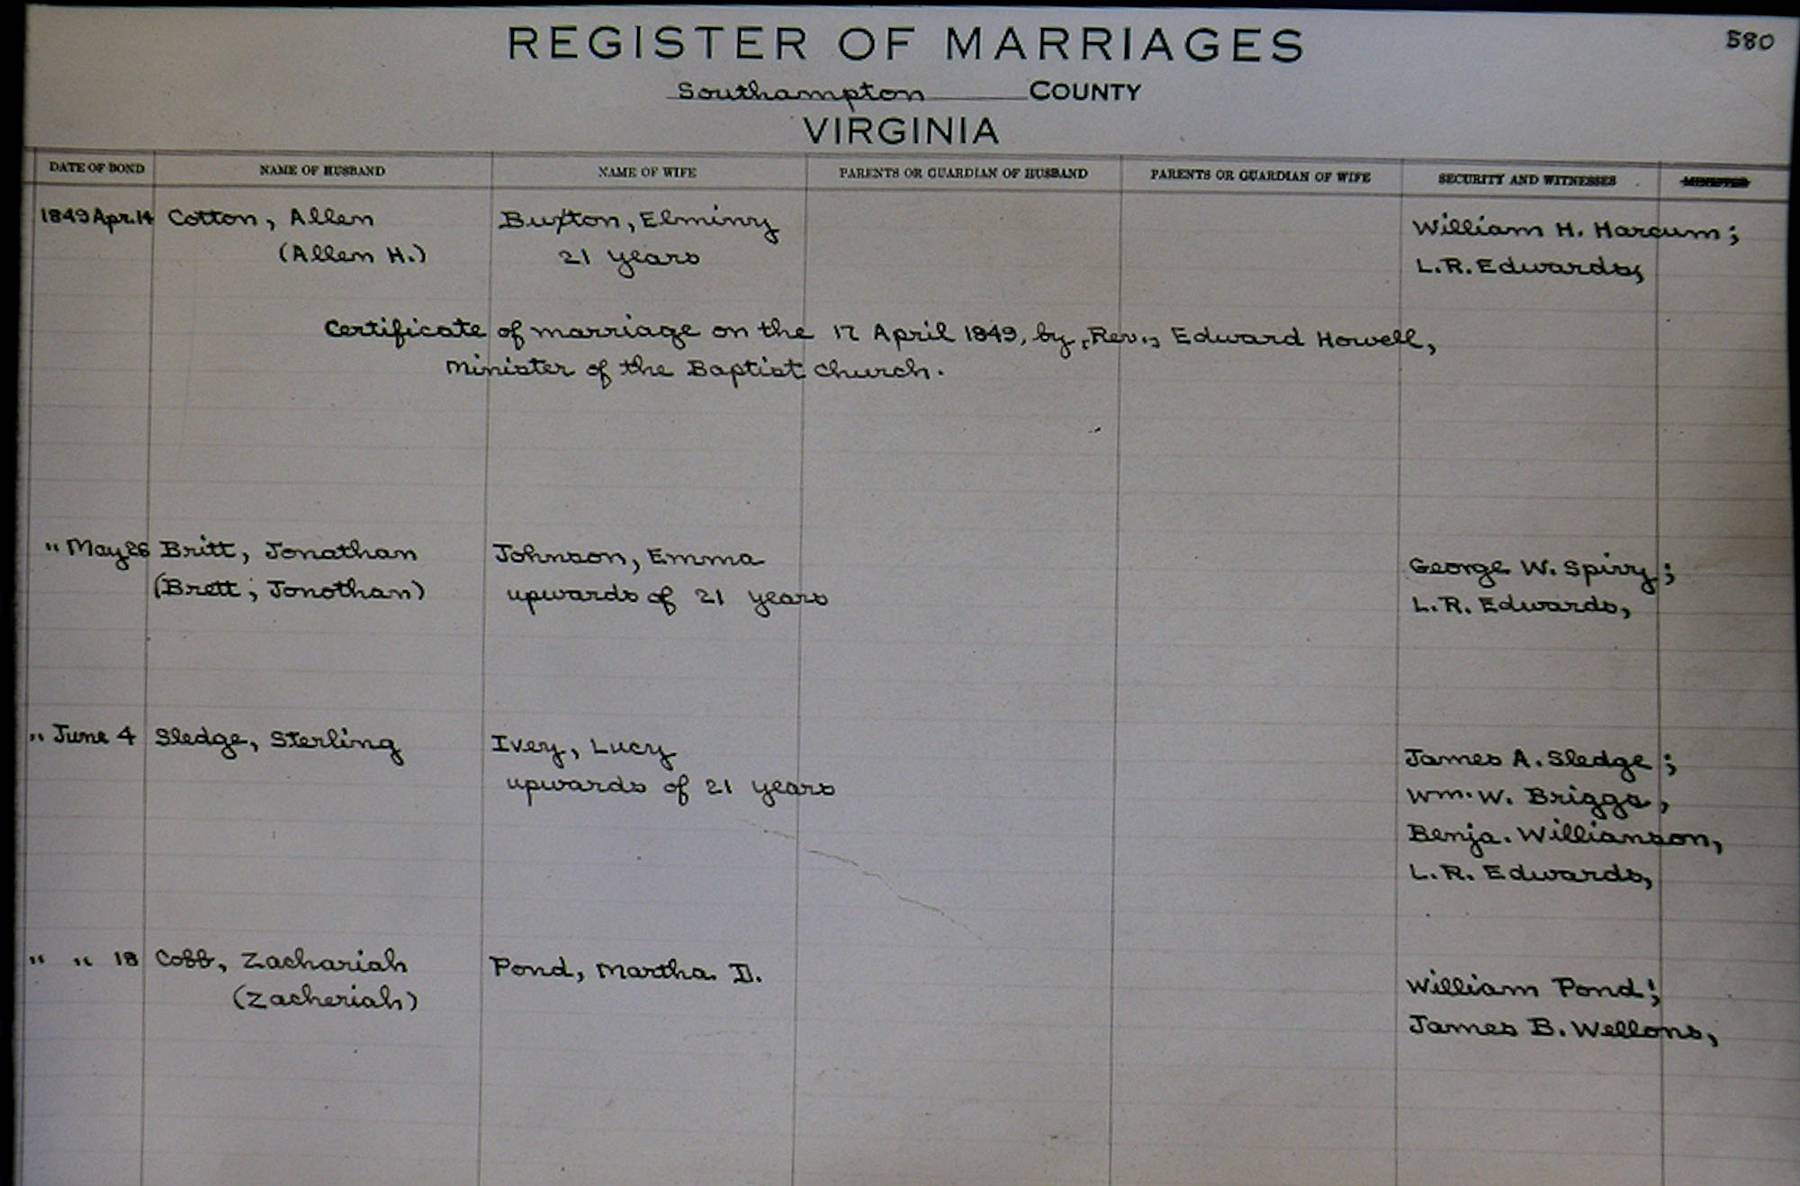 REGISTER OF MARRIAGES
580
Southampton COUNTY
VIRGINIA
DATE OF BOND NAME OF HUSBAND NAME OF WIFE PARENTS OR GUARDIAN OF HUSBAND PARENTS OR GUARDIAN OF WIFE SECURITY AND WITNESSES MINISTER
1849 Apr. 14 Cotton, Allen Buxton, Elminry William H. Harcum;
(Allen H.) 21 years L.R. Edwards,
Certificate of marriage on the 17 April 1849, by, Rev., Edward Howell,
Minister of the Baptist church.
" May 26 Britt, Jonathan Johnson, Emma George W. Spivy;
(Brett; Jonothan) upwards of 21 years L.R. Edwards,
" June 4 Sledge, Sterling Ivey, Lucy James A. Sledge;
upwards of 21 years Wm. W. Briggs,
Benja. Williamson,
L.R. Edwards,
" " 18 Cobb, Zachariah Pond, Martha D. William Pond;
(Zacheriah) James B. Wellons,